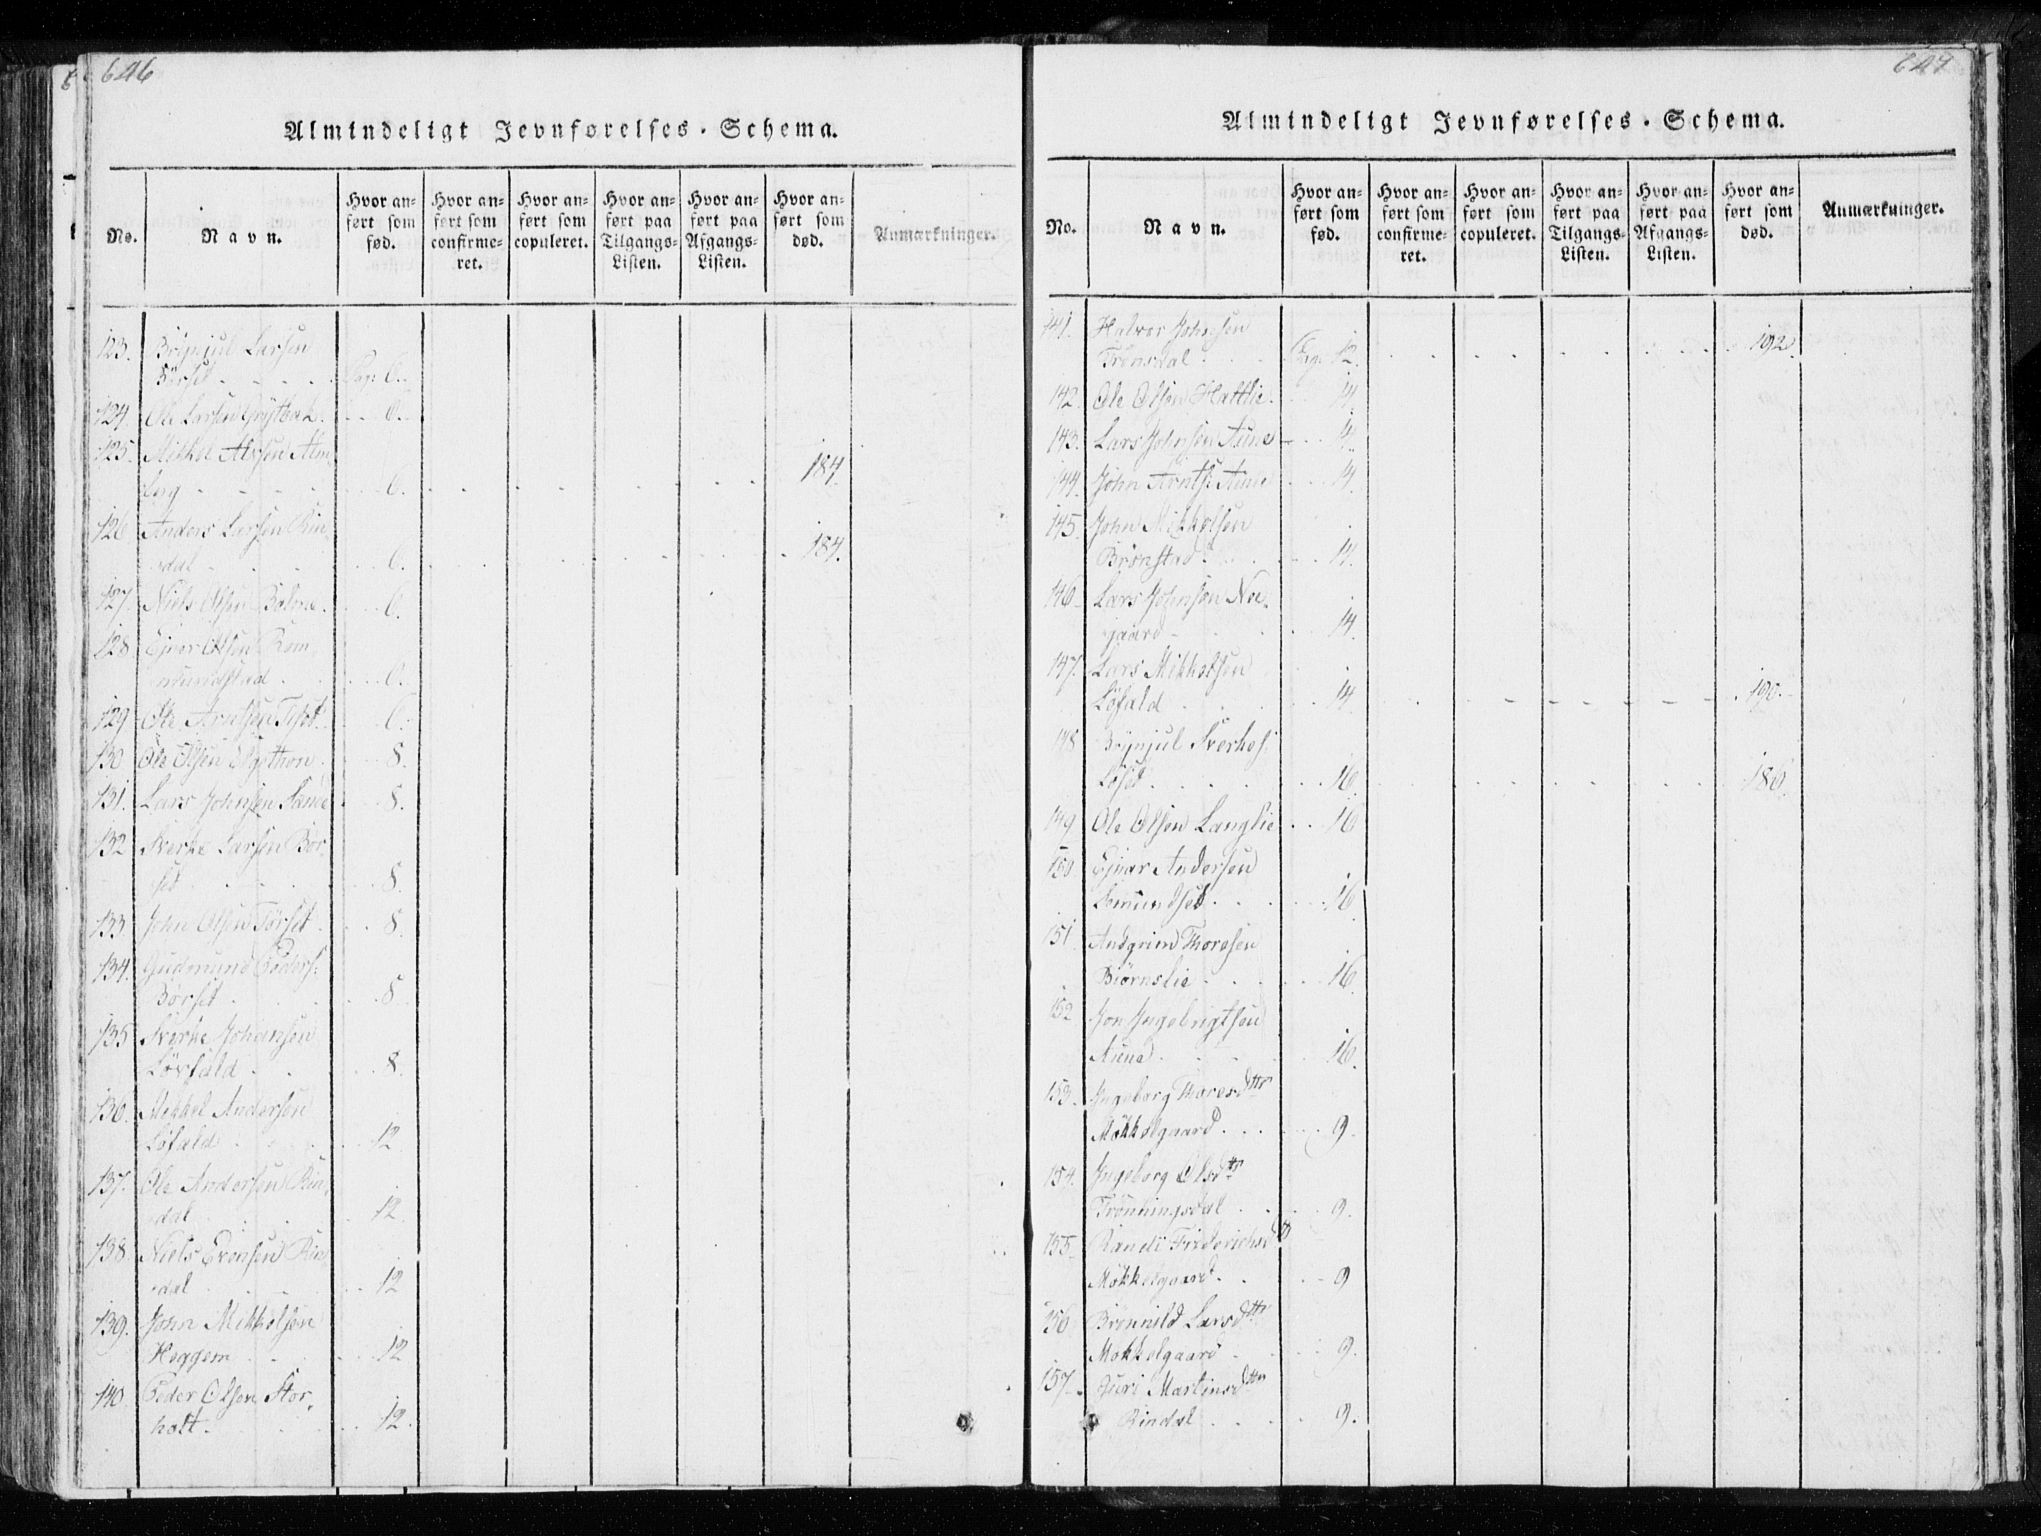 646
Almindeligt Jevnførelses-Schema.
No.
Navn.
Hvor anført som fød.
Hvor anført som confirmeret.
Hvor anført som copuleret.
Hvor anført paa Tilgangs-Listen.
Hvor anført paa Afgangs-Listen.
Hvor anført som død.
Anmærkninger.
123. Brynjul Larsen
Børset . . . . Pag: 6.
124. Ole Larsen Grytbak . . 6.
125. Mikkel
berg . . . . 6. . . . . . . . 184.
126 Anders Larsen Rin
dal . . . . 6. . . . . . . . 184.
127. Niels Olsen Bolme . . . 6.
128 Ejner Olsen Rom
mundstad . . . 6.
129 Ole Arntsen . . 6.
130 Ole Olsen . . . 8.
131. Lars Johnsen Sande . 8.
132 Sverke Larsen Bør
set . . . . . 8.
133 John Olsen Tørset . . . 8.
134. Gudmund Peders:
Børset . . . . 8
135 Sverke Johansen
Løvfald . . . . 8.
136. Mekkel Andersen
Løfald . . . . 12
137. Ole Andersen Rin
dal . . . . 12.
138. Niels Evensen Rin
dal . . . . 12
139. John Mikkelsen
Heggem . . . . 12
140. Peder Olsen Stor
holt . . . . 12.
647
Almindeligt Jevnførelses-Schema.
No.
Navn.
Hvor anført som fød.
Hvor anført som confirmeret.
Hvor anført som copuleret.
Hvor anført paa Tilgangs-Listen.
Hvor anført paa Afgangs-Listen.
Hvor anført som død.
Anmærkninger.
141. Halvor Johnsen
Trønsdal . . . Pag: 12. . . . . . . . 192.
142. Ole Olsen Hattlie . . 14.
143. Lars Johnsen Aune . . 14.
144. John Arnts: Aune . . 14.
145. John Mikkelsen
Brønstad . . . . 14.
146 Lars Johnsen Noe
gaard . . . . 14.
147. Lars Mikkelsen
Løfald . . . . 14. . . . . . . . 190.
148 Brynjul Sverkes:
Løset . . . . 16. . . . . . . . 186.
149 Ole Olsen Langlie . . 16
150. Ejnar Andersen
Lomundset . . . . 16.
151. Andgrim Thoresen
Biørnslie . . . . 16.
152 Jon Ingebrigtsen
Aune . . . . 16.
153. Ingeborg Thoresdttr
Møkkelgaard . . . . 9.
154. Ingeborg Olsdtr
Trønningsdal . . . . 9.
155. Randi Friderichsd
Møkkelgaard . . . . 9
156 Brønnild Larsdttr
Møkkelgaard . . . . 9.
157. Guri Martinsdttr
Rindal . . . . 9.